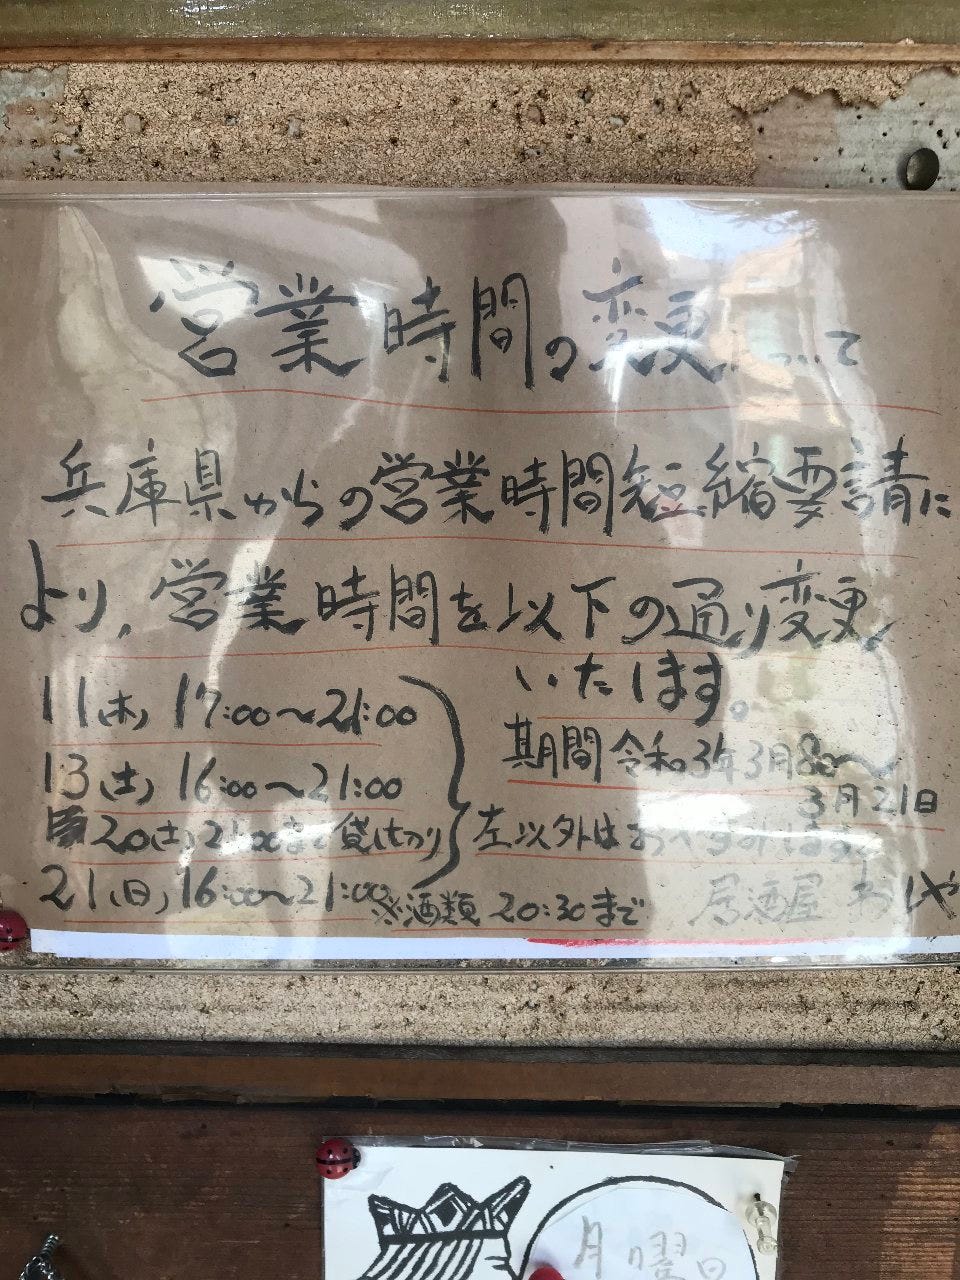 営業時間の変更について
兵庫県からの営業時間短縮要請に
より、営業時間を以下の通り変更
いたします。
11(木) 17:00〜21:00
13(土) 16:00〜21:00
20(土) 21:00まで 貸し切り
21(日) 16:00〜21:00
期間 令和3年3月8日〜
3月21日
左以外はお休みします
※酒類 20:30まで
居酒屋
月曜日